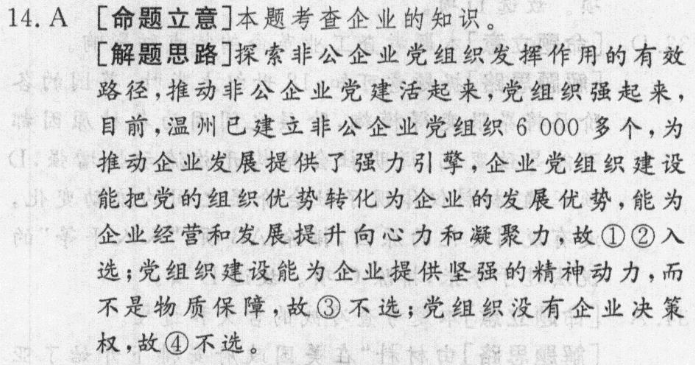 14. A [命题立意]本题考查企业的知识。
[解题思路]探索非公企业党组织发挥作用的有效
路径,推动非公企业党建活起来,党组织强起来,
目前,温州已建立非公企业党组织 6 000 多个,为
推动企业发展提供了强力引擎,企业党组织建设
能把党的组织优势转化为企业的发展优势,能为
企业经营和发展提升向心力和凝聚力,故①②入
选;党组织建设能为企业提供坚强的精神动力,而
不是物质保障,故③不选;党组织没有企业决策
权,故④不选。